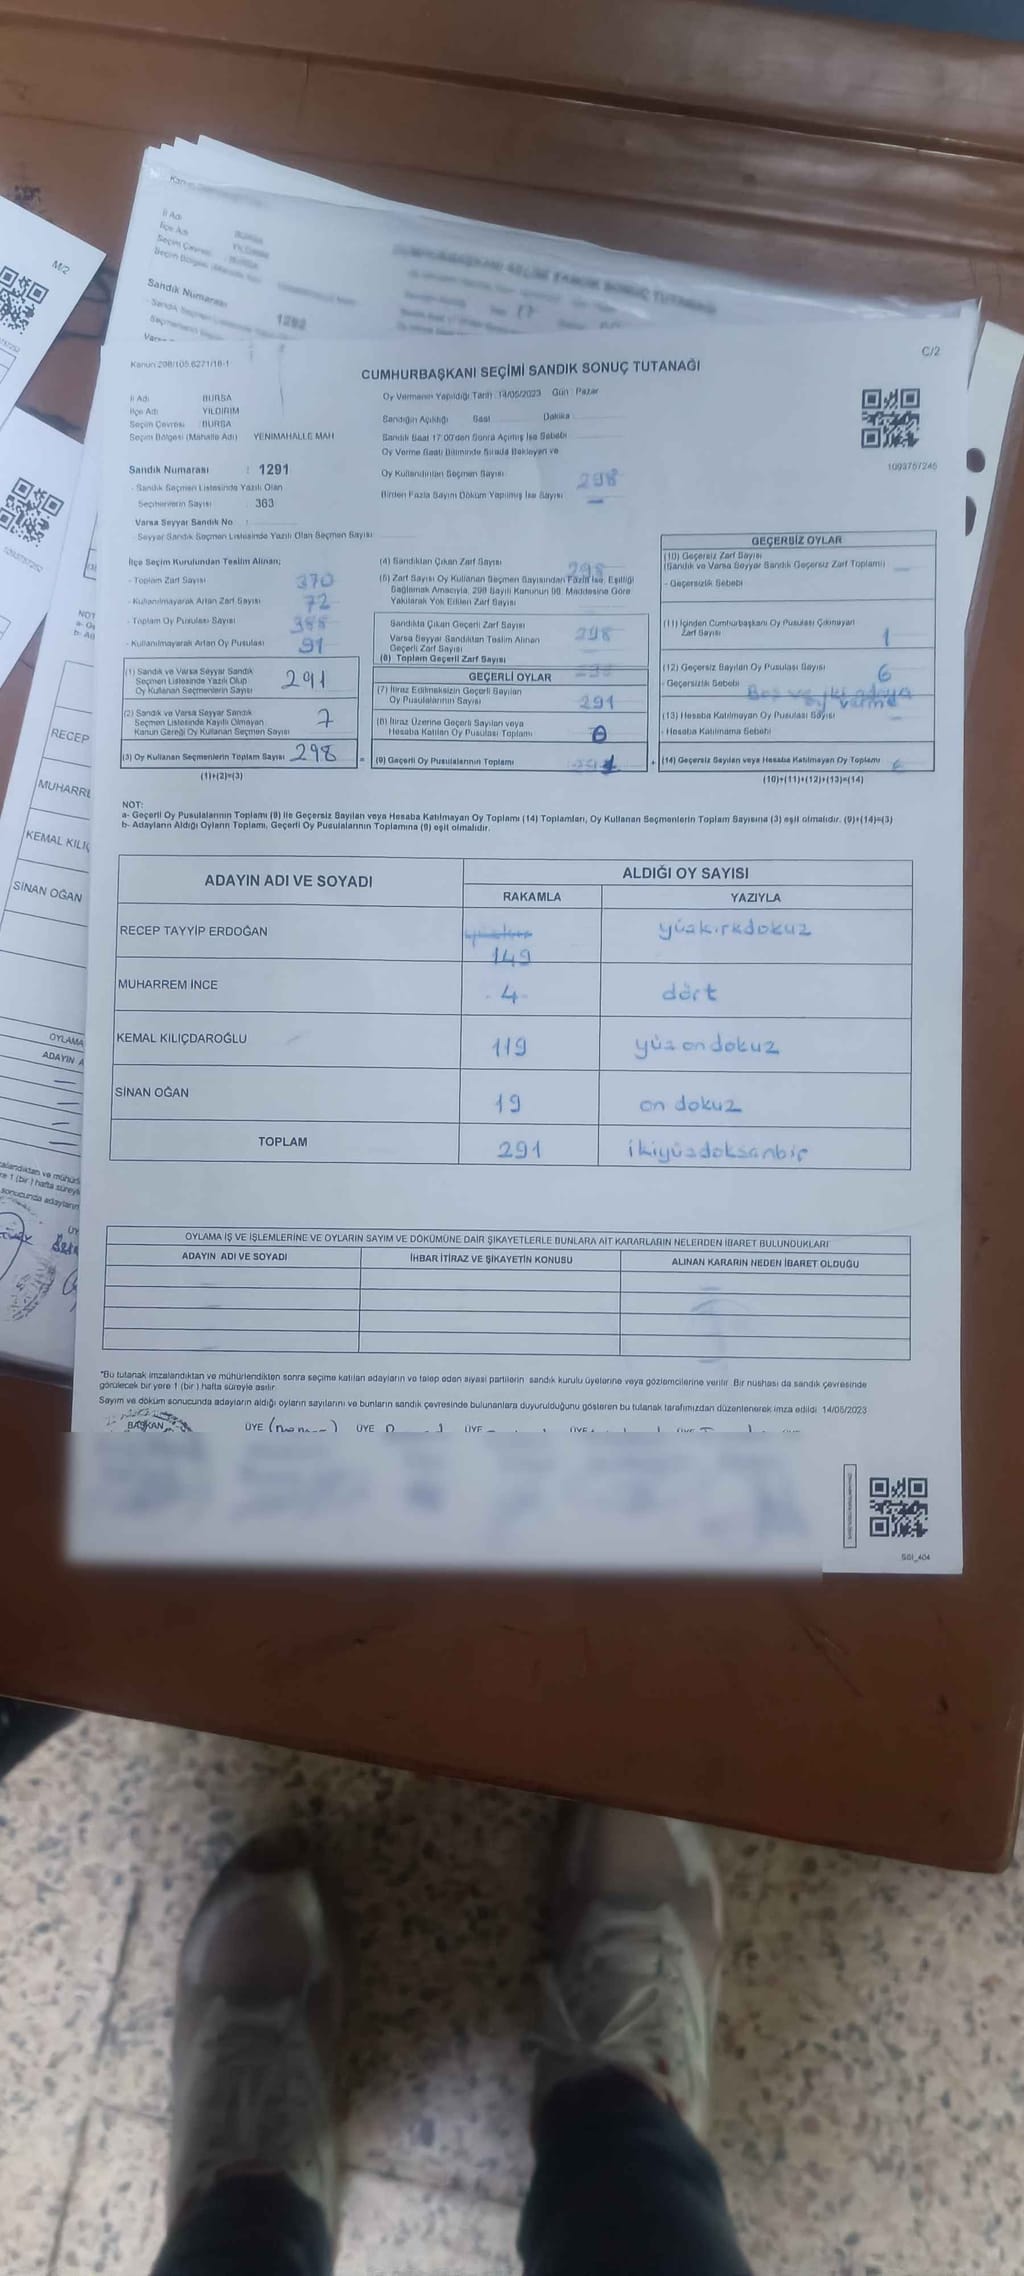 M/2
C/2
Kanun 298/105 6271/18-1
CUMHURBAŞKANI SEÇİMİ SANDIK SONUÇ TUTANAĞI
İl Adı BURSA
İlçe Adı YILDIRIM
Seçim Çevresi BURSA
Seçim Bölgesi (Mahalle Adı) YENİMAHALLE MAH
Oy Vermenin Yapıldığı Tarih 14/05/2023 Gün : Pazar
Sandığın Açıldığı Saat Dakika
Sandık Saat 17:00'den Sonra Açılmış İse Sebebi
Oy Verme Saati Bitiminde Sırada Bekleyen ve
Oy Kullandırılan Seçmen Sayısı 298
Birden Fazla Sayım Döküm Yapılmış İse Sayısı —
1093757245
Sandık Numarası : 1291
- Sandık Seçmen Listesinde Yazılı Olan
Seçmenlerin Sayısı : 363
Varsa Seyyar Sandık No :
- Seyyar Sandık Seçmen Listesinde Yazılı Olan Seçmen Sayısı
İlçe Seçim Kurulundan Teslim Alınan;
- Toplam Zarf Sayısı 370
- Kullanılmayarak Artan Zarf Sayısı 72
- Toplam Oy Pusulası Sayısı
- Kullanılmayarak Artan Oy Pusulası 91
(1) Sandık ve Varsa Seyyar Sandık
Seçmen Listesinde Yazılı Olup
Oy Kullanan Seçmenlerin Sayısı 291
(2) Sandık ve Varsa Seyyar Sandık
Seçmen Listesinde Kayıtlı Olmayan
Kanun Gereği Oy Kullanan Seçmen Sayısı 7
(3) Oy Kullanan Seçmenlerin Toplam Sayısı 298
(1)+(2)=(3)
(4) Sandıktan Çıkan Zarf Sayısı 298
(5) Zarf Sayısı Oy Kullanan Seçmen Sayısından Fazla İse, Eşitliği
Sağlamak Amacıyla, 298 Sayılı Kanunun 98. Maddesine Göre
Yakılarak Yok Edilen Zarf Sayısı
Sandıkta Çıkan Geçerli Zarf Sayısı 298
Varsa Seyyar Sandıktan Teslim Alınan
Geçerli Zarf Sayısı
(6) Toplam Geçerli Zarf Sayısı
GEÇERLİ OYLAR
(7) İtiraz Edilmeksizin Geçerli Sayılan
Oy Pusulalarının Sayısı 291
(8) İtiraz Üzerine Geçerli Sayılan veya
Hesaba Katılan Oy Pusulası Toplamı 0
(9) Geçerli Oy Pusulalarının Toplamı
GEÇERSİZ OYLAR
(10) Geçersiz Zarf Sayısı
(Sandık ve Varsa Seyyar Sandık Geçersiz Zarf Toplamı) —
- Geçersizlik Sebebi
(11) İçinden Cumhurbaşkanı Oy Pusulası Çıkmayan
Zarf Sayısı 1
(12) Geçersiz Sayılan Oy Pusulası Sayısı 6
- Geçersizlik Sebebi Boş ve iki adaya
oy verme
(13) Hesaba Katılmayan Oy Pusulası Sayısı
- Hesaba Katılmama Sebebi
(14) Geçersiz Sayılan veya Hesaba Katılmayan Oy Toplamı
(10)+(11)+(12)+(13)=(14)
NOT:
a- Geçerli Oy Pusulalarının Toplamı (9) ile Geçersiz Sayılan veya Hesaba Katılmayan Oy Toplamı (14) Toplamları, Oy Kullanan Seçmenlerin Toplam Sayısına (3) eşit olmalıdır. (9)+(14)=(3)
b- Adayların Aldığı Oyların Toplamı, Geçerli Oy Pusulalarının Toplamına (9) eşit olmalıdır.
ADAYIN ADI VE SOYADI ALDIĞI OY SAYISI
RAKAMLA YAZIYLA
RECEP TAYYİP ERDOĞAN 149 yüzkırkdokuz
MUHARREM İNCE 4 dört
KEMAL KILIÇDAROĞLU 119 yüz ondokuz
SİNAN OĞAN 19 on dokuz
TOPLAM 291 ikiyüzdoksanbir
OYLAMA İŞ VE İŞLEMLERİNE VE OYLARIN SAYIM VE DÖKÜMÜNE DAİR ŞİKAYETLERLE BUNLARA AİT KARARLARIN NELERDEN İBARET BULUNDUKLARI
ADAYIN ADI VE SOYADI İHBAR İTİRAZ VE ŞİKAYETİN KONUSU ALINAN KARARIN NEDEN İBARET OLDUĞU
*Bu tutanak imzalandıktan ve mühürlendikten sonra seçime katılan adayların ve talep eden siyasi partilerin sandık kurulu üyelerine veya gözlemcilerine verilir. Bir nüshası da sandık çevresinde
görülecek bir yere 1 (bir) hafta süreyle asılır.
Sayım ve döküm sonucunda adayların aldığı oyların sayılarını ve bunların sandık çevresinde bulunanlara duyurulduğunu gösteren bu tutanak tarafımızdan düzenlenerek imza edildi 14/05/2023
BAŞKAN ÜYE ÜYE ÜYE
İl Adı BURSA
İlçe Adı
Seçim Çevresi BURSA
Sandık Numarası 1292
RECEP
MUHARRE
KEMAL KILIÇ
SİNAN OĞAN
OYLAMA
ADAYIN A